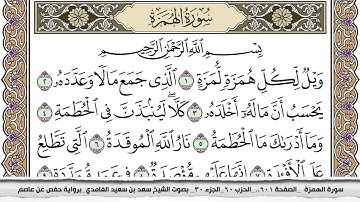 سُورَةُ الهُمَزَةِ
بِسْمِ اللَّهِ الرَّحْمَٰنِ الرَّحِيمِ
وَيْلٌ لِّكُلِّ هُمَزَةٍ لُّمَزَةٍ ١ الَّذِي جَمَعَ مَالًا وَعَدَّدَهُ ٢
يَحْسَبُ أَنَّ مَالَهُ أَخْلَدَهُ ٣ كَلَّا لَيُنۢبَذَنَّ فِي الْحُطَمَةِ ٤
وَمَا أَدْرَىٰكَ مَا الْحُطَمَةُ ٥ نَارُ اللَّهِ الْمُوقَدَةُ ٦ الَّتِي تَطَّلِعُ
عَلَى الْأَفْـِٔدَةِ ٧ إِنَّهَا عَلَيْهِم مُّؤْصَدَةٌ ٨ فِي عَمَدٍ مُّمَدَّدَةٍ
سورة الهمزة _الصفحة ٦٠١_ الحزب ٦٠_ الجزء ٣٠_ بصوت الشيخ سعد بن سعيد الغامدي_ برواية حفص عن عاصم